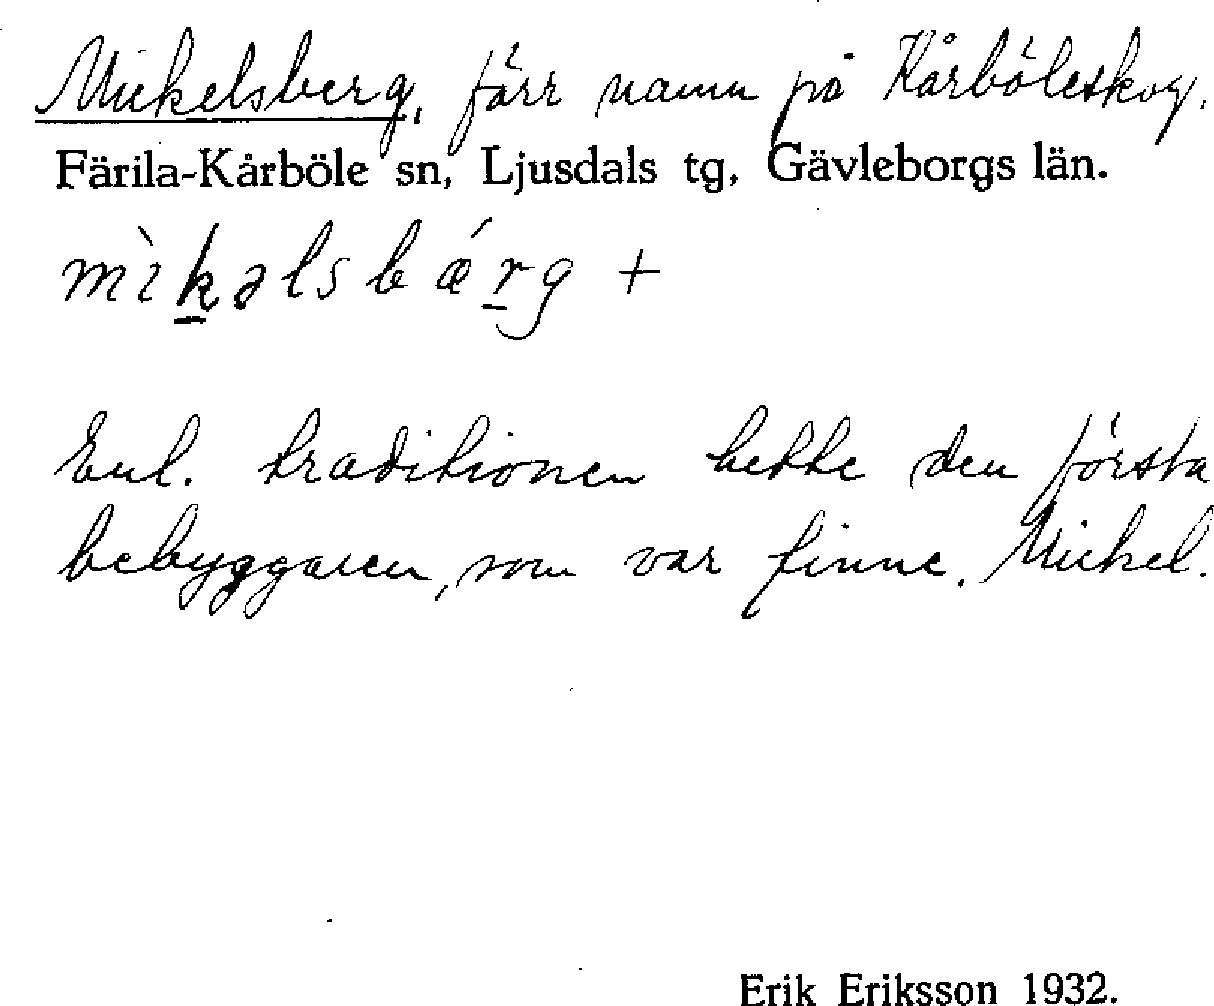 Mickelsberg, förr namn på Kårböleskog.
Färila-Kårböle sn, Ljusdals tg, Gävleborgs län.
mìkəlsbǽrg +
Enl. traditionen hette den första
bebyggaren, som var finne, Mickel.
Erik Eriksson 1932.